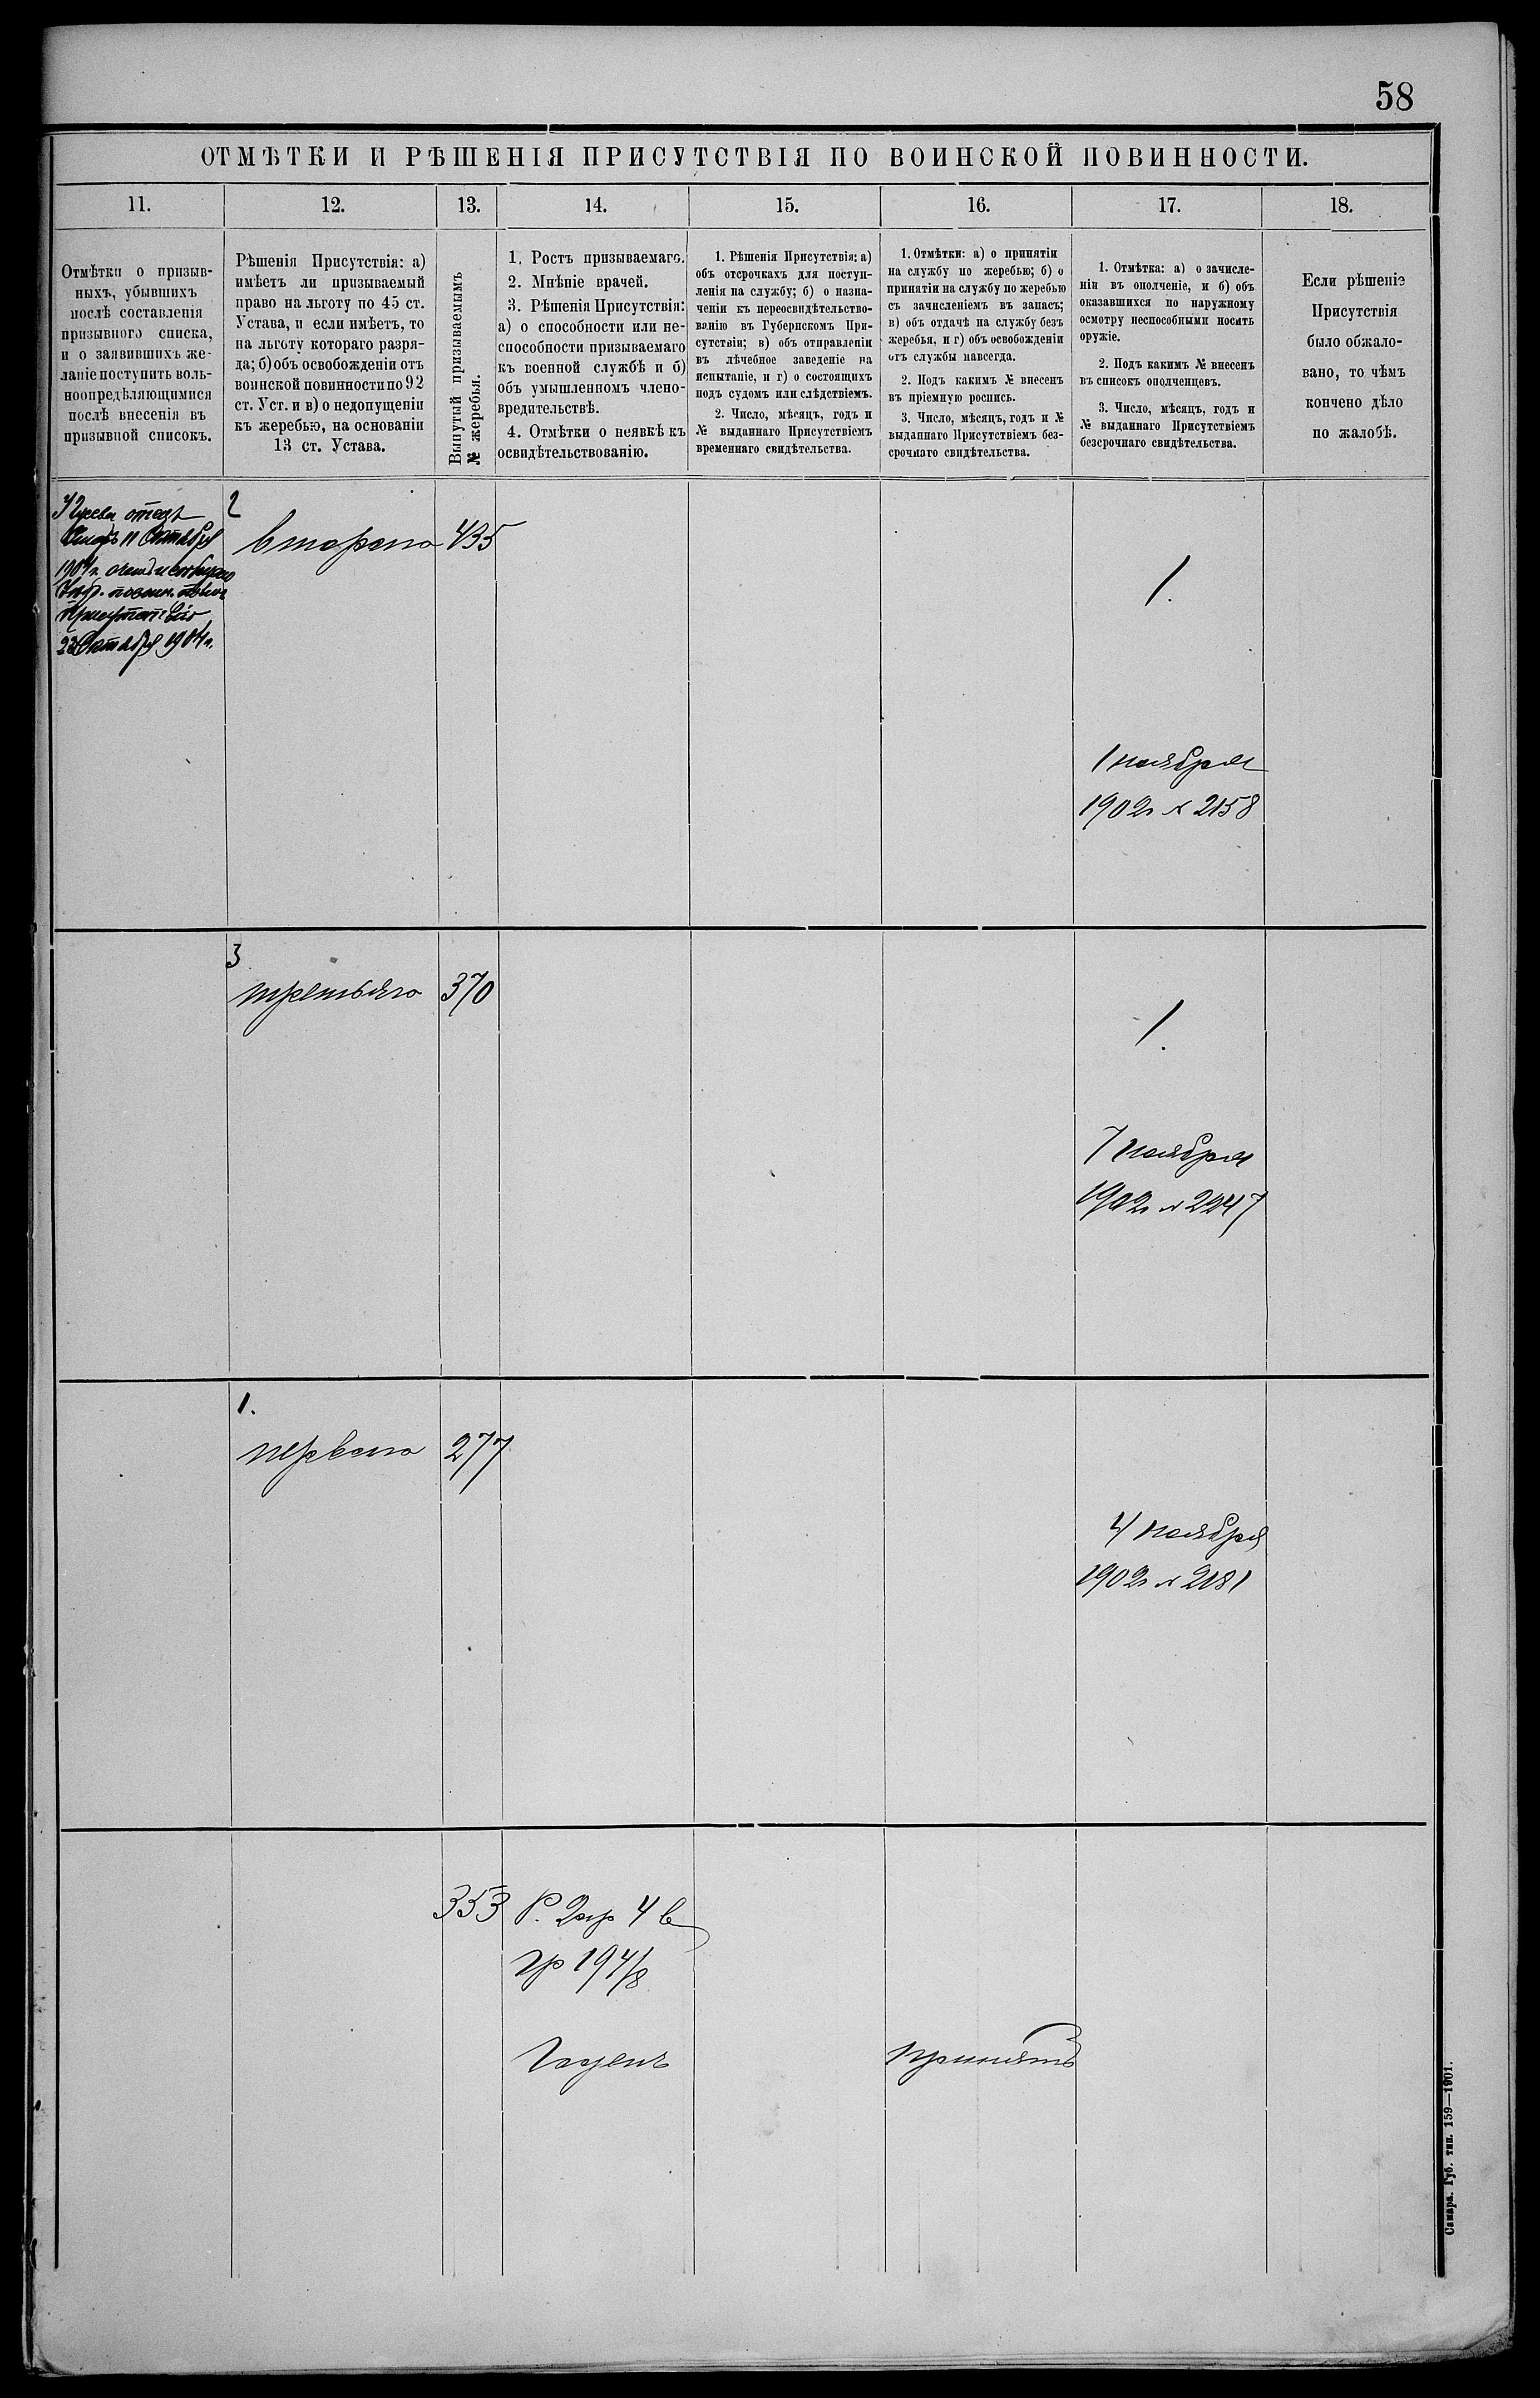 58
ОТМѢТКИ И РѢШЕНІЯ ПРИСУТСТВІЯ ПО ВОИНСКОЙ ПОВИННОСТИ.
11.
12.
13.
14.
15.
16.
17.
18.
Отмѣтки о призыв-
ныхъ, убывшихъ
послѣ составленія
призывного списка,
и о заявившихъ же-
ланіе поступить воль-
ноопредѣляющимися
послѣ внесенія въ
призывной списокъ.
Рѣшенія Присутствія: а)
имѣетъ ли призываемый
право на льготу по 45 ст.
Устава, и если имѣетъ, то
на льготу котораго разря-
да; б) объ освобожденіи отъ
воинской повинности по 92
ст. Уст. и в) о недопущеніи
къ жеребью, на основаніи
13 ст. Устава.
Вынутый призываемымъ
№ жеребья.
1. Ростъ призываемаго.
2. Мнѣніе врачей.
3. Рѣшенія Присутствія:
а) о способности или не-
способности призываемаго
къ военной службѣ и б)
объ умышленномъ члено-
вредительствѣ.
4. Отмѣтки о неявкѣ къ
освидѣтельствованію.
1. Рѣшенія Присутствія: а)
объ отсрочкахъ для поступ-
ленія на службу; б) о назна-
ченіи къ переосвидѣтельство-
ванію въ Губернскомъ При-
сутствіи; в) объ отправленіи
въ лѣчебное заведеніе на
испытаніе, и г) о состоящихъ
подъ судомъ или слѣдствіемъ.
2. Число, мѣсяцъ, годъ и
№ выданнаго Присутствіемъ
временнаго свидѣтельства.
1. Отмѣтки: а) о принятіи
на службу по жеребью; б) о
принятіи на службу по жеребью
съ зачисленіемъ въ запасъ;
в) объ отдачѣ на службу безъ
жеребья, и г) объ освобожденіи
отъ службы навсегда.
2. Подъ какимъ № внесенъ
въ пріемную роспись.
3. Число, мѣсяцъ, годъ и №
выданнаго Присутствіемъ без-
срочнаго свидѣтельства.
1. Отмѣтка: а) о зачисле-
ніи въ ополченіе, и б) объ
оказавшихся по наружному
осмотру неспособными носить
оружіе.
2. Подъ какимъ № внесенъ
въ списокъ ополченцевъ.
3. Число, мѣсяцъ, годъ и
№ выданнаго Присутствіемъ
безсрочнаго свидѣтельства.
Если рѣшеніе
Присутствія
было обжало-
вано, то чѣмъ
кончено дѣло
по жалобѣ.
отецъ
11 Октября
1904 г.
Присутствіе
23 Октября 1904 г.
2
второго
435
1.
1 ноября
1902 г № 2158
3
третьяго
370
1.
7 ноября
1902 г № 2247
1.
перваго
277
4 ноября
1902 г № 2181
353
Р. 2 ар 4 в
гр 19 4/8
Годенъ
принятъ
Самара. Губ. тип. 159—1901.